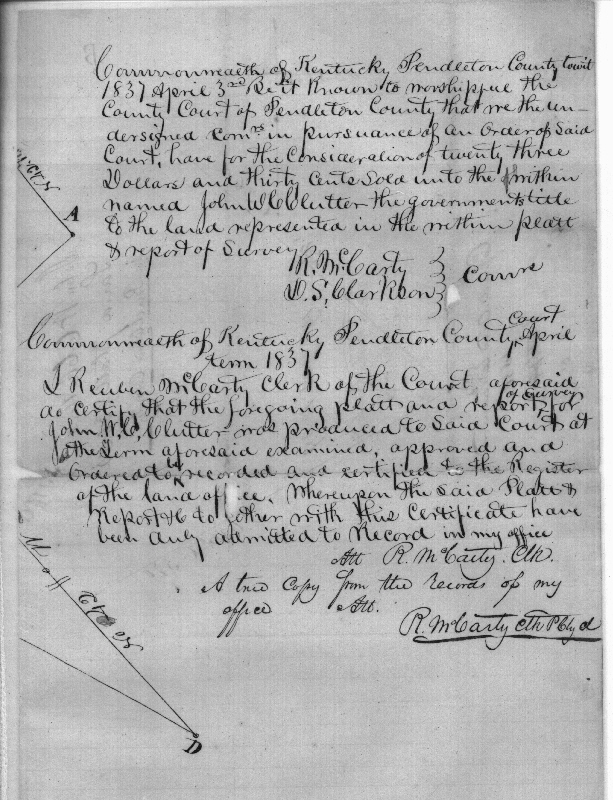 Commonwealth of Kentucky Pendleton County towit
1837 April 3rd Be it Known to worshippue the
County Court of Pendleton County that we the un-
dersigned Comrs in pursuance of an Order of Said
Court, have for the Consideration of twenty three
Dollars and thirty Cents Sold unto the within
named John W C Clutter the governments title
to the land represented in the within platt
& report of Survey
R. McCarty
D. S. Clarkson } Comrs
A
Commonwealth of Kentucky Pendleton County Court April
term 1837
I Reuben McCarty Clerk of the Court aforesaid
do Certify that the foregoing platt and report of Survey for
John W. C. Clutter was produced to Said Court at
the Term aforesaid examined, approved and
Ordered to be recorded and certified to the Register
of the land office. Whereupon the said Platt &
Report & to gether with this Certificate have
been duly admitted to Record in my office
Att R. McCarty. Clk.
A true Copy from the records of my
office Att.
R. McCarty Clk P Cty Ct
D